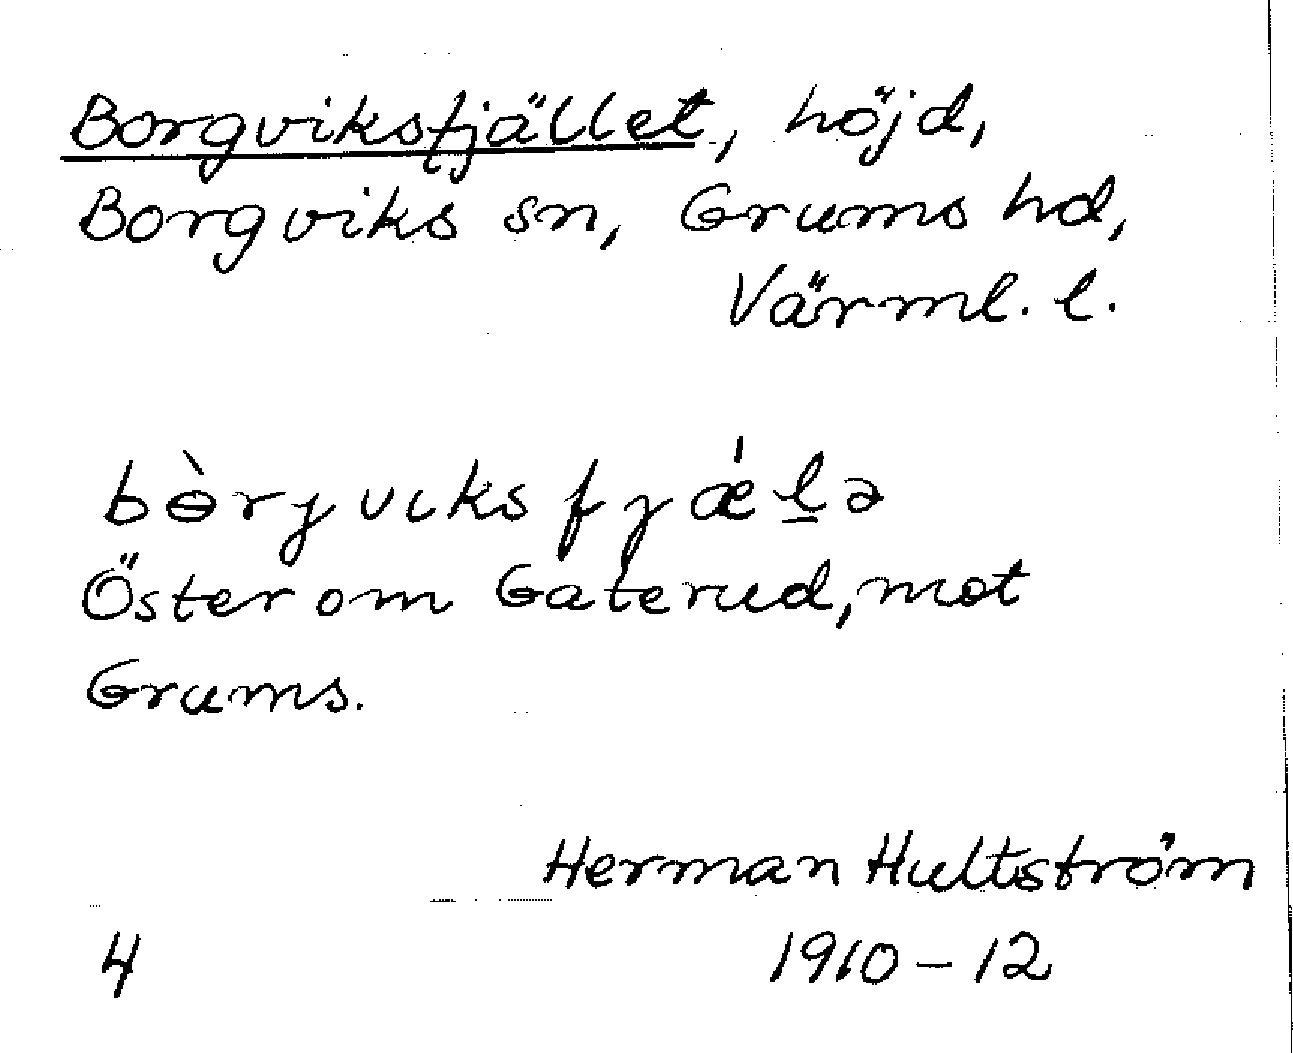 Borgviksfjället, höjd,
Borgviks sn, Grums hd,
Värml. l.
bɵ̀rȷvıksfȷǽl̲ə
Öster om Gaterud, mot
Grums.
Herman Hultström
4 1910-12